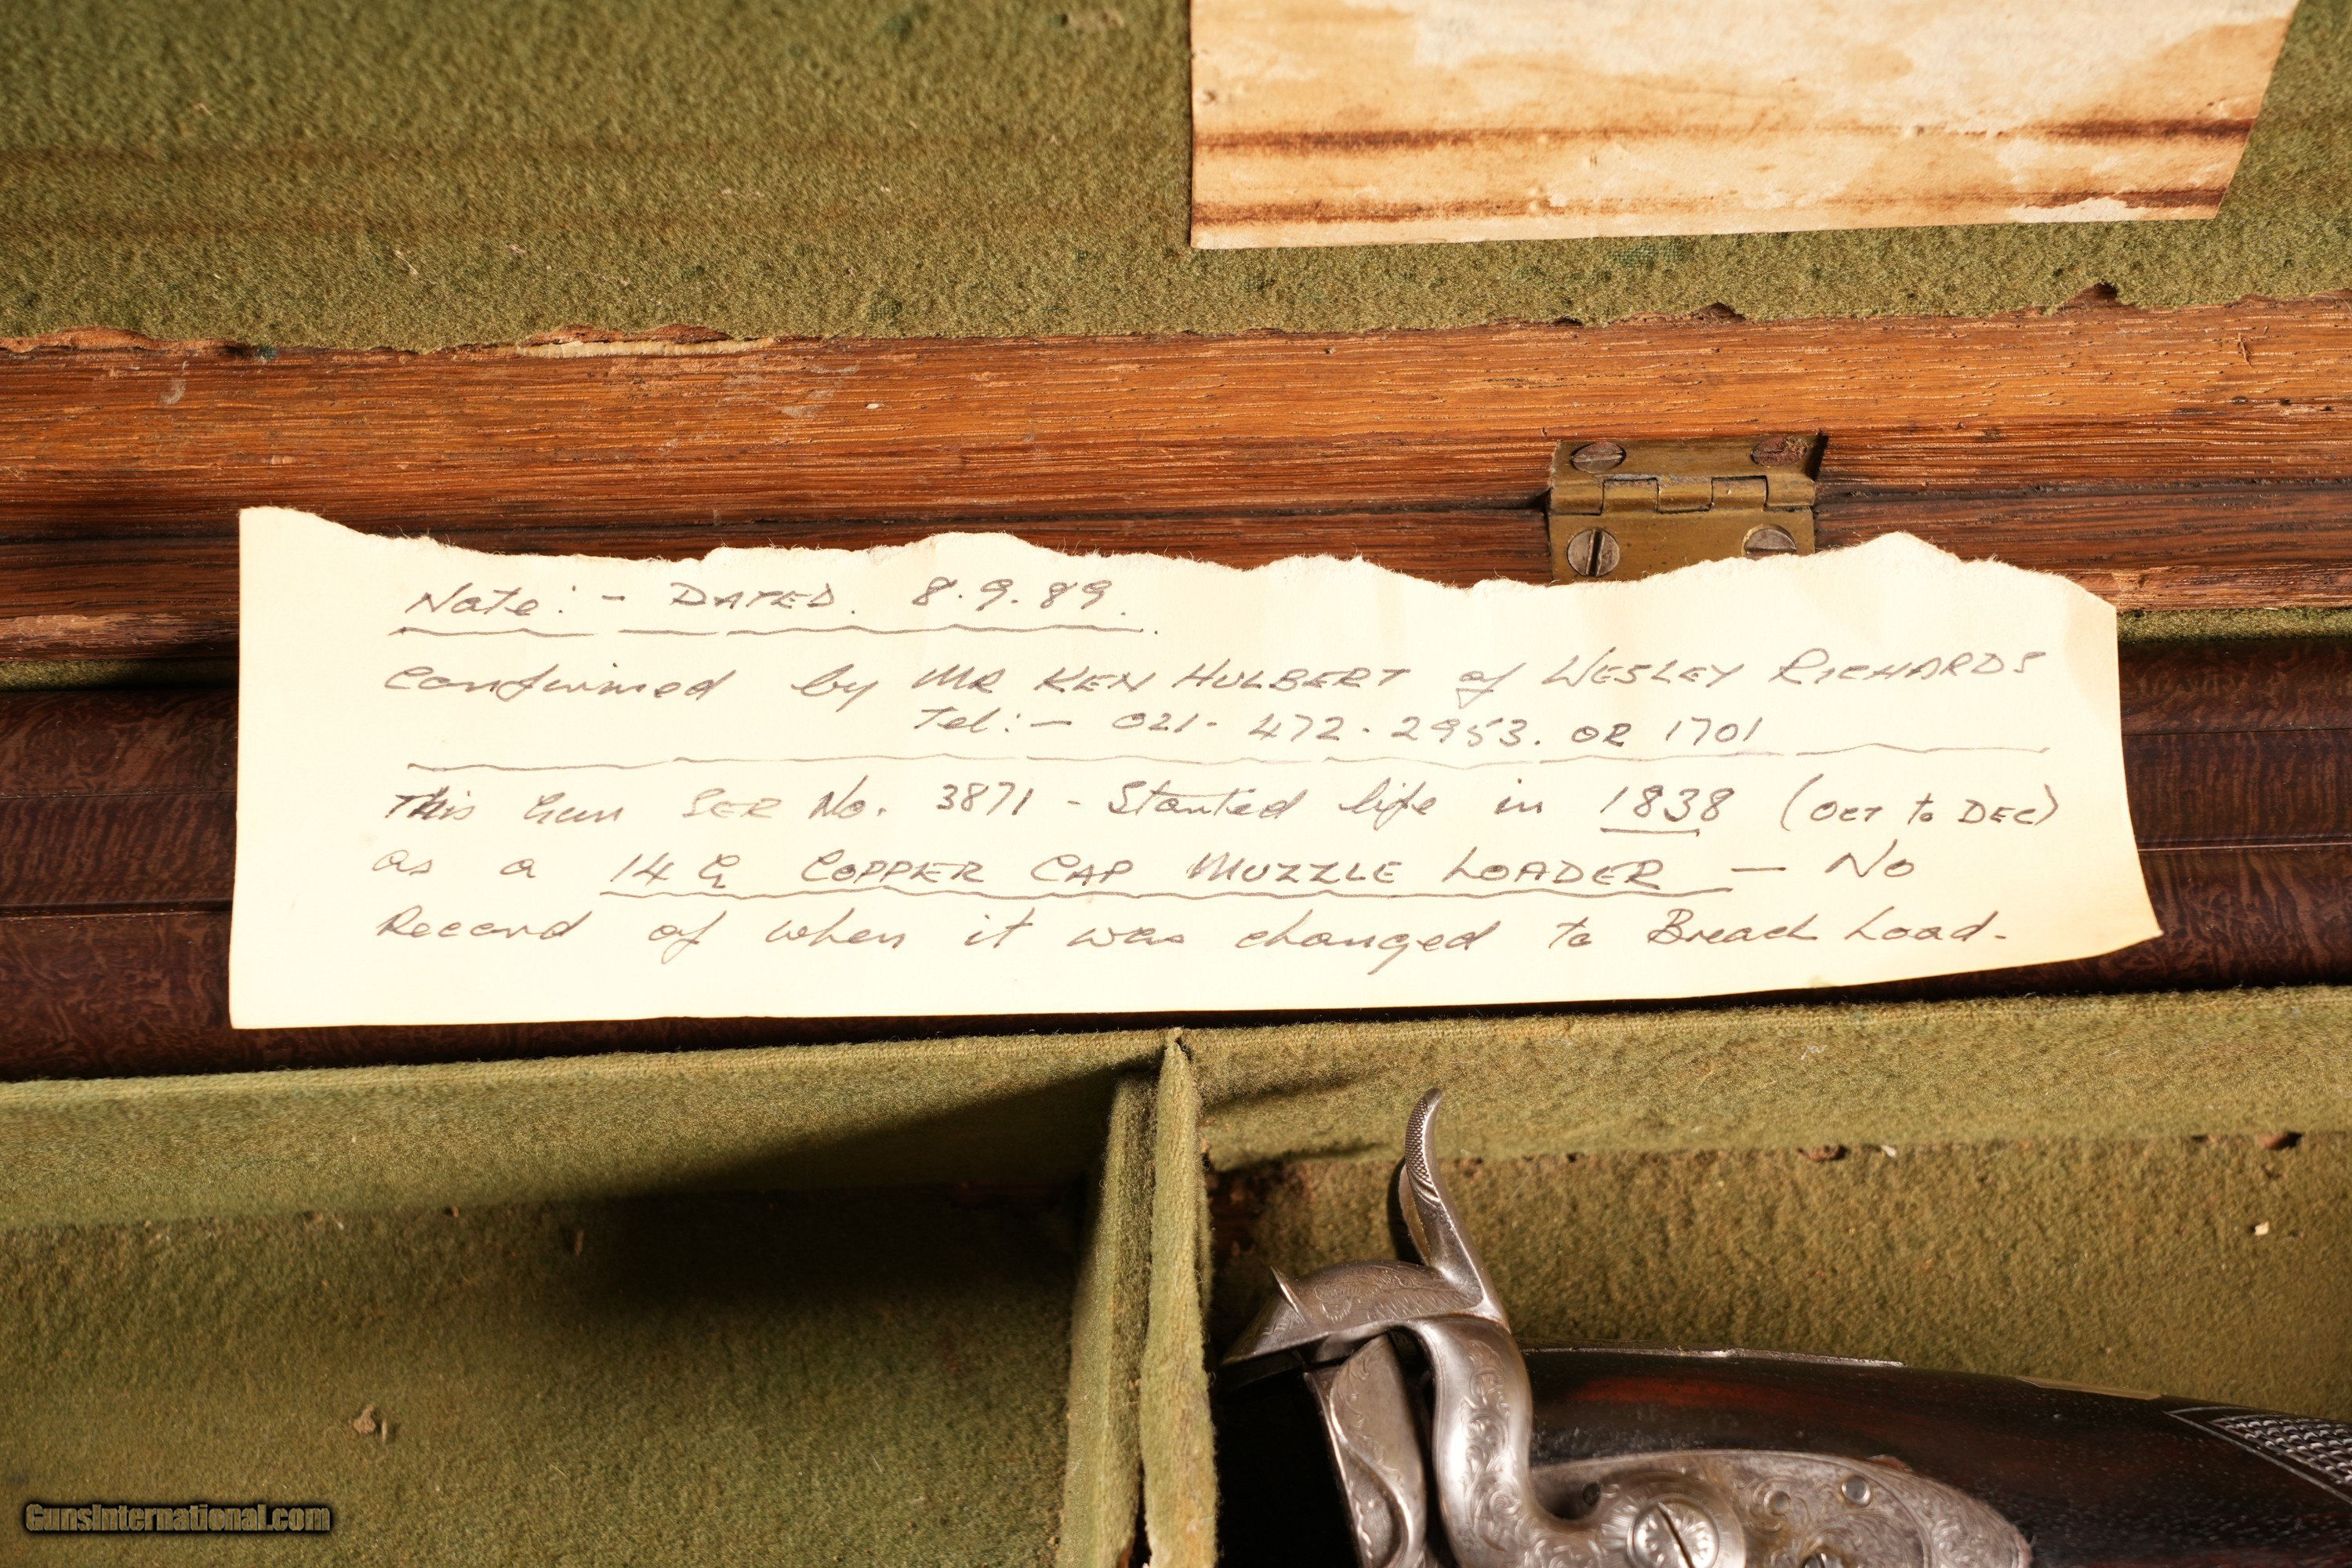 Note:- DATED. 8.9.89.
Confirmed by MR KEN HULBERT of WESLEY RICHARDS
Tel:- 021-472-2953. OR 1701
This Gun SER No. 3871 - Started life in 1838 (OCT to DEC)
as a 14 G COPPER CAP MUZZLE LOADER - No
Record of when it was changed to Breach Load-
GunsInternational.com